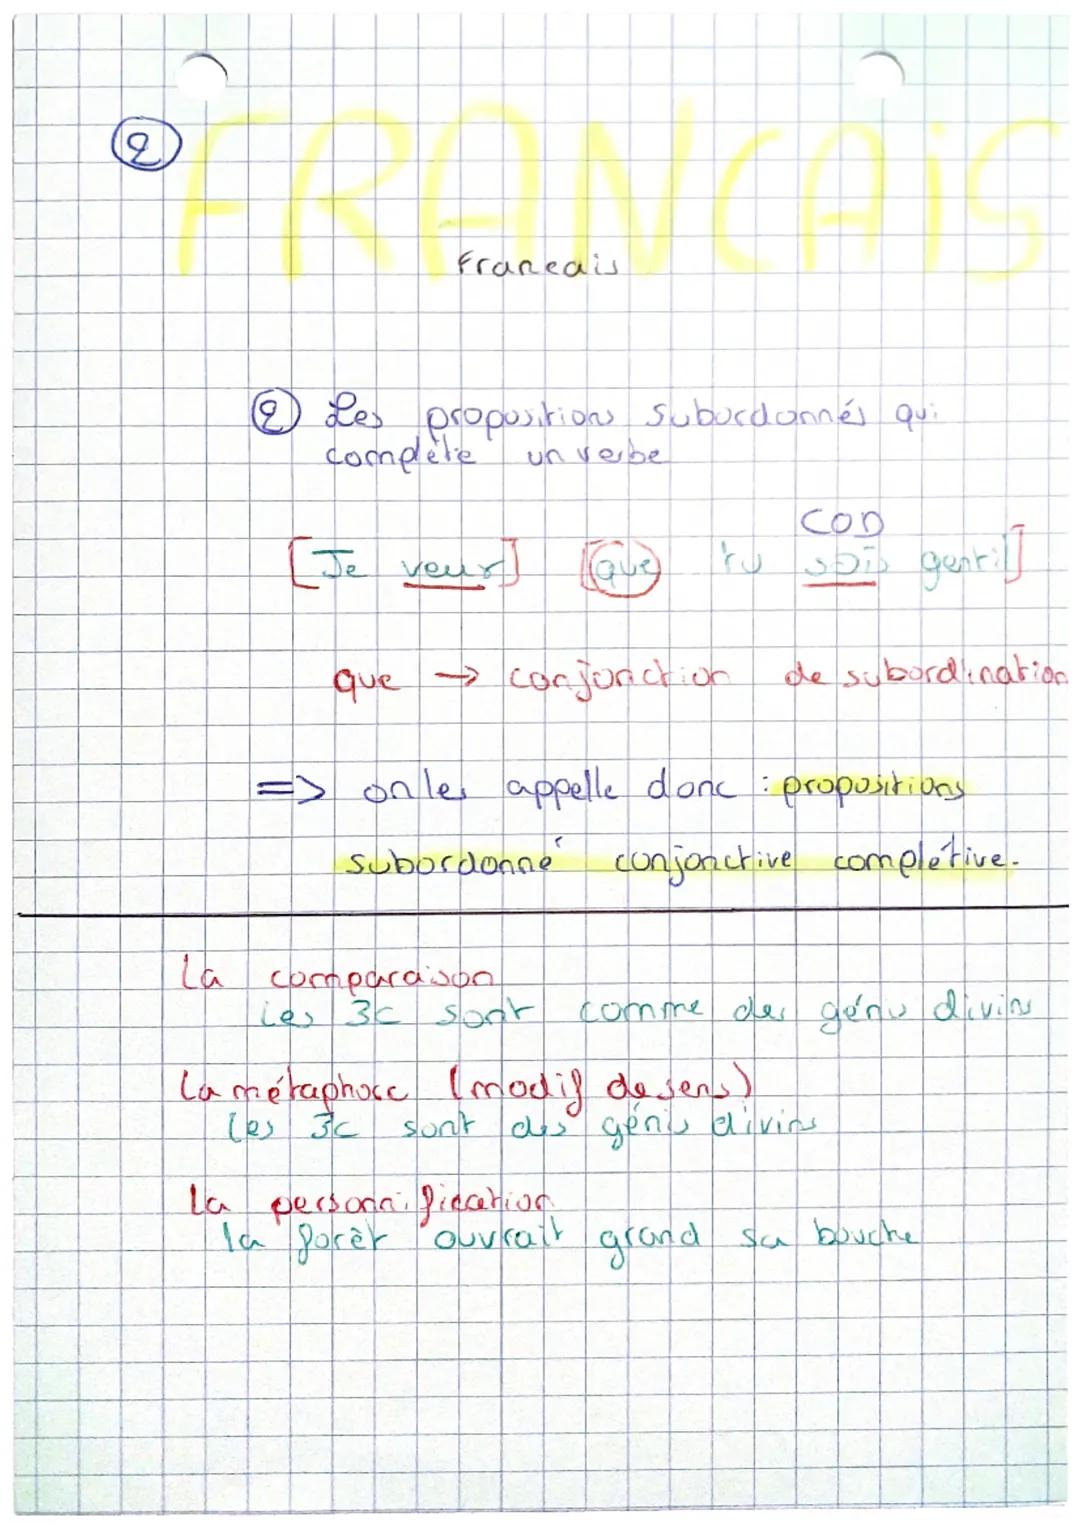 2
FRANCAIS
Francais
2 Les propositions subordonnés qui
complète un verbe
COD
[Je veux] [que tu sois gentil]
que → conjonction de subordination
=> on les appelle donc : propositions
subordonné conjonctive complétive.
La comparaison
Les 3c sont comme des génis divins
La métaphore (modif de sens)
Les 3c sont des génis divins
La personnification
la forêt ouvrait grand sa bouche